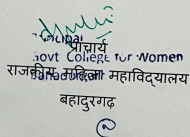 Principal
प्राचार्य
Govt College for Women
राजकीय महिला महाविद्यालय
Bahadurgarh
बहादुरगढ़